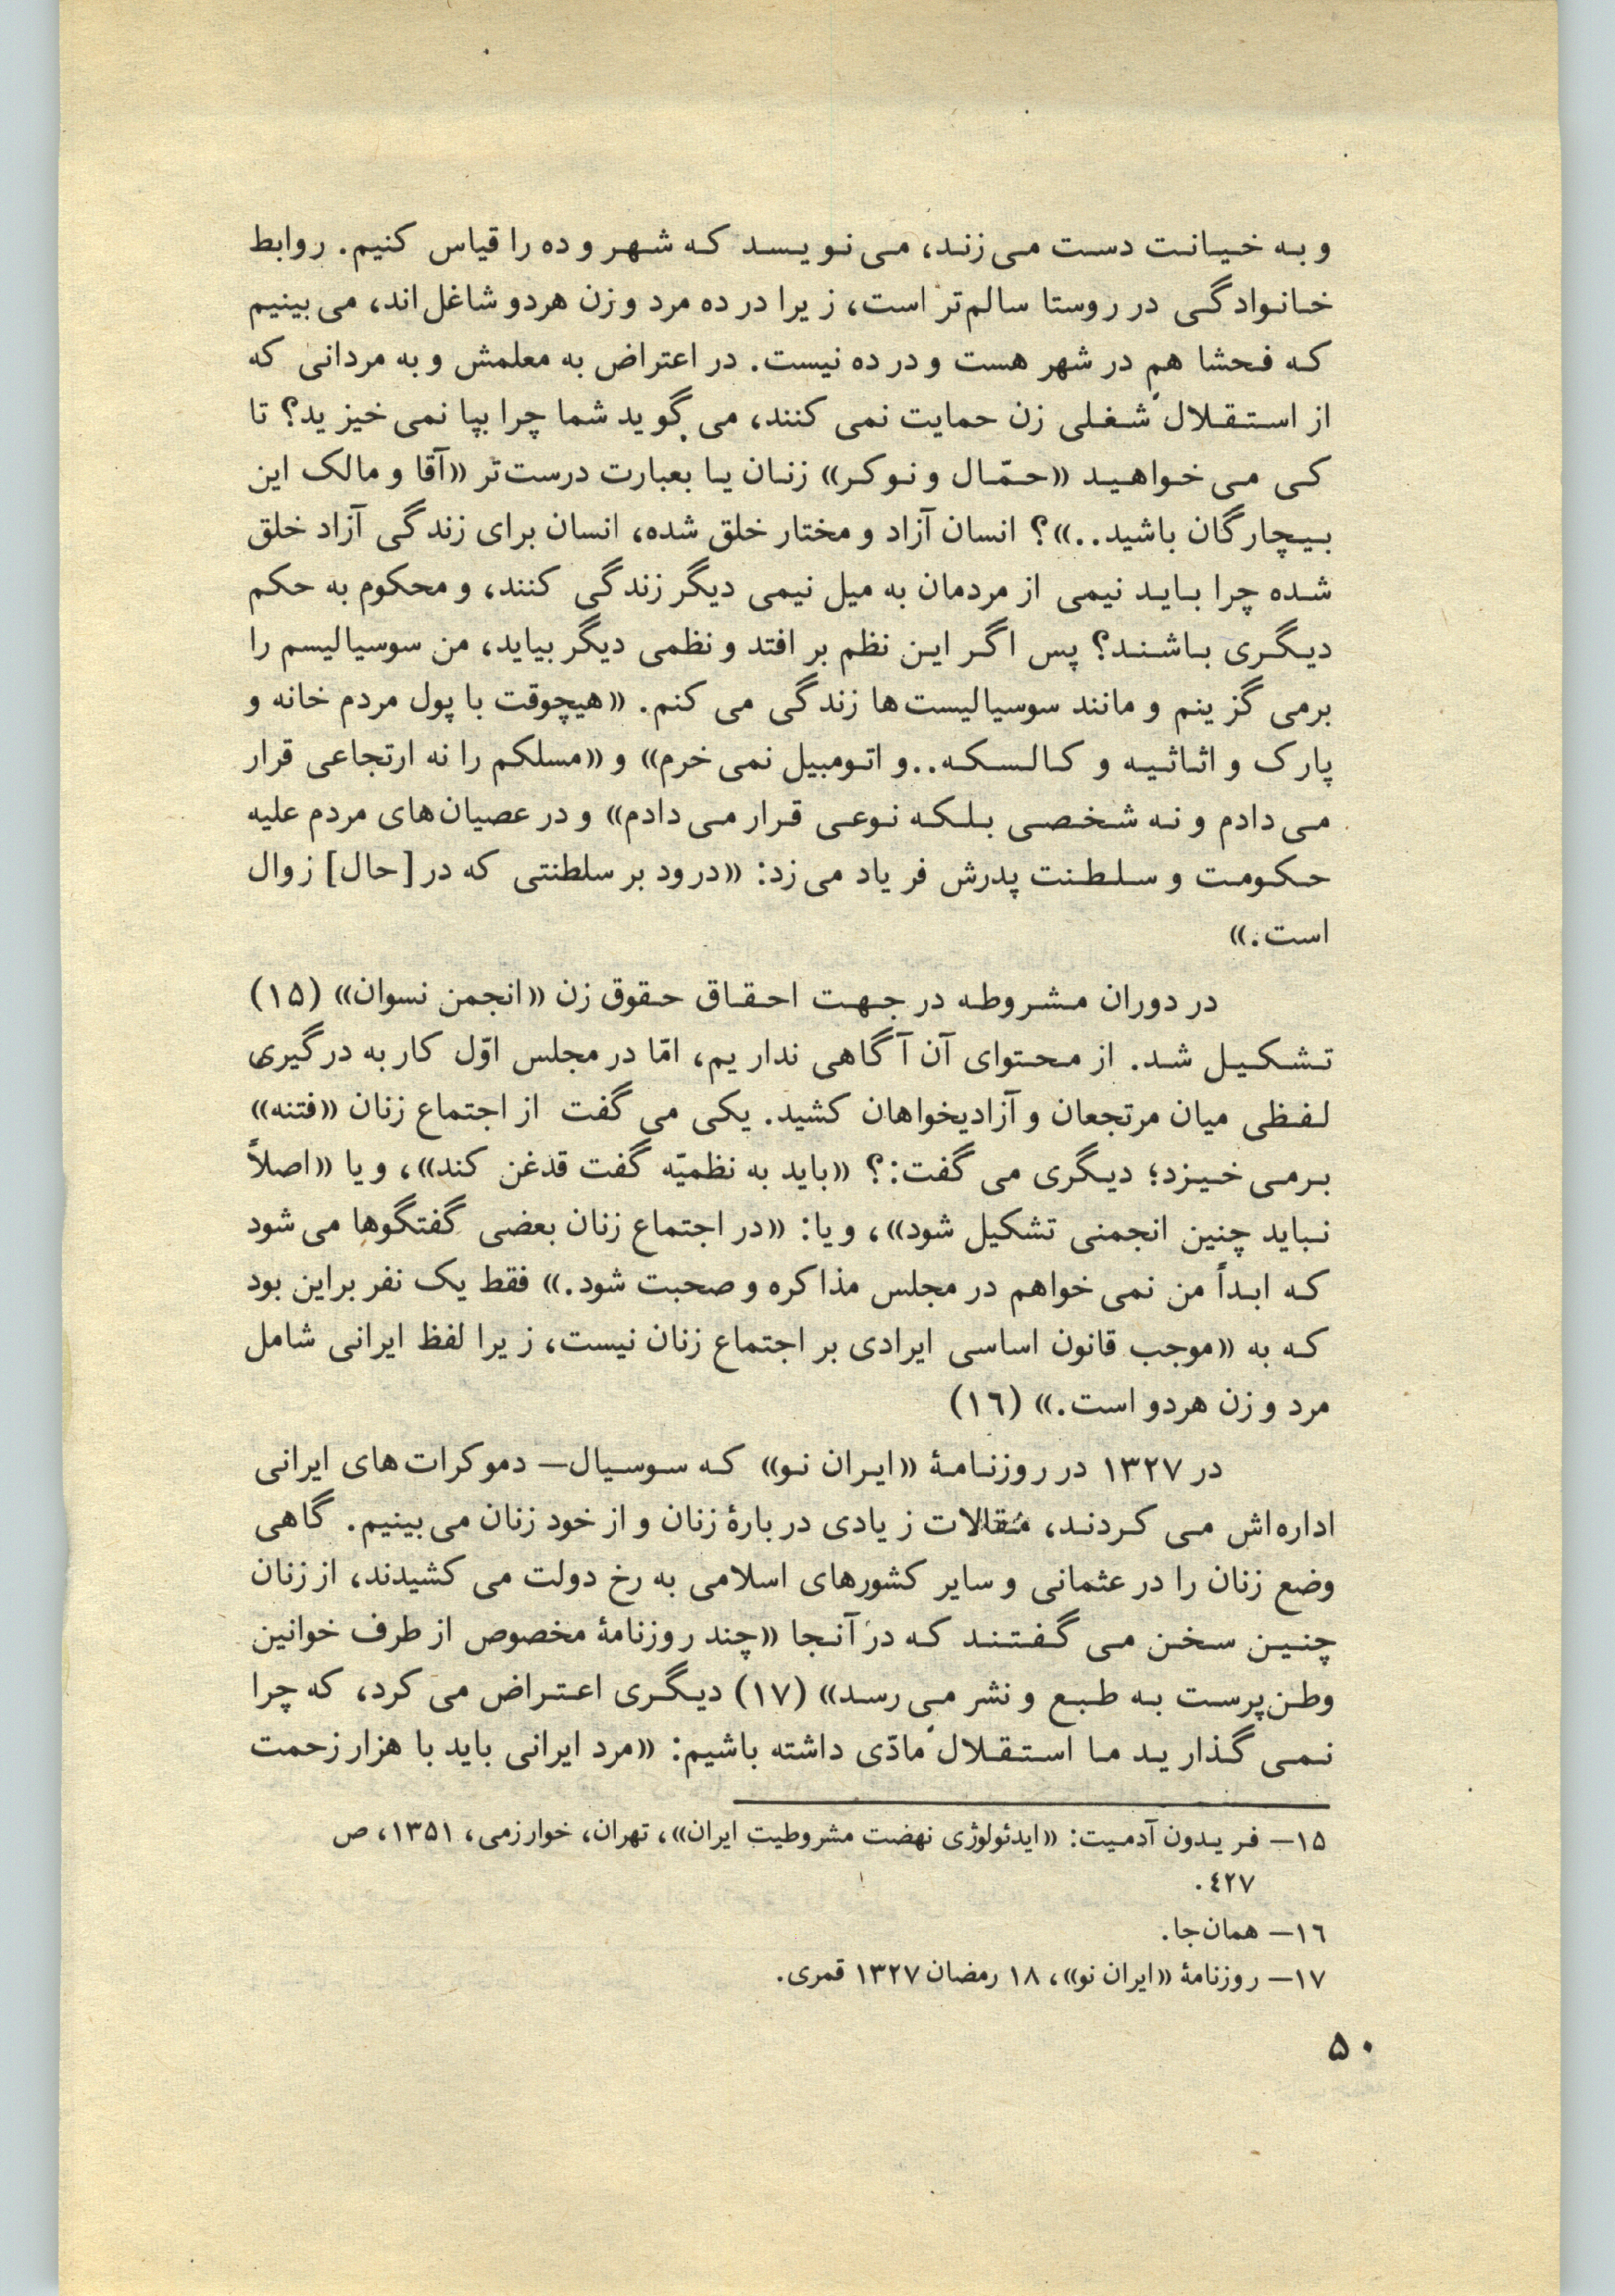 و به خیانت دست می‌زند، می‌نویسد که شهر و ده را قیاس کنیم. روابط
خانوادگی در روستا سالم‌تر است، زیرا در ده مرد و زن هردو شاغل‌اند، می‌بینیم
که فحشا هم در شهر هست و در ده نیست. در اعتراض به معلمش و به مردانی که
از استقلال شغلی زن حمایت نمی‌کنند، می‌گوید شما چرا بپا نمی‌خیزید؟ تا
کی می‌خواهید «حمّال و نوکر» زنان یا بعبارت درست‌تر «آقا و مالک این
بیچارگان باشید..»؟ انسان آزاد و مختار خلق شده، انسان برای زندگی آزاد خلق
شده چرا باید نیمی از مردمان به میل نیمی دیگر زندگی کنند، و محکوم به حکم
دیگری باشند؟ پس اگر این نظم بر افتد و نظمی دیگر بیاید، من سوسیالیسم را
برمی‌گزینم و مانند سوسیالیست‌ها زندگی می‌کنم. «هیچوقت با پول مردم خانه و
پارک و اثاثیه و کالسکه..و اتومبیل نمی‌خرم» و «مسلکم را نه ارتجاعی قرار
می‌دادم و نه شخصی بلکه نوعی قرار می‌دادم» و در عصیان‌های مردم علیه
حکومت و سلطنت پدرش فریاد می‌زد: «درود بر سلطنتی که در [حال] زوال
است.»
در دوران مشروطه در جهت احقاق حقوق زن «انجمن نسوان» (۱۵)
تشکیل شد. از محتوای آن آگاهی نداریم، امّا در مجلس اوّل کار به درگیری
لفظی میان مرتجعان و آزادیخواهان کشید. یکی می‌گفت از اجتماع زنان «فتنه»
برمی‌خیزد؛ دیگری می‌گفت:؟ «باید به نظمیّه گفت قدغن کند»، و یا «اصلاً
نباید چنین انجمنی تشکیل شود»، و یا: «در اجتماع زنان بعضی گفتگوها می‌شود
که ابداً من نمی‌خواهم در مجلس مذاکره و صحبت شود.» فقط یک نفر براین بود
که به «موجب قانون اساسی ایرادی بر اجتماع زنان نیست، زیرا لفظ ایرانی شامل
مرد و زن هردو است.» (۱۶)
در ۱۳۲۷ در روزنامهٔ «ایران نو» که سوسیال— دموکرات‌های ایرانی
اداره‌اش می‌کردند، مقالات زیادی در بارهٔ زنان و از خود زنان می‌بینیم. گاهی
وضع زنان را در عثمانی و سایر کشورهای اسلامی به رخ دولت می‌کشیدند، از زنان
چنین سخن می‌گفتند که در آنجا «چند روزنامهٔ مخصوص از طرف خوانین
وطن‌پرست به طبع و نشر می‌رسد» (۱۷) دیگری اعتراض می‌کرد، که چرا
نمی‌گذارید ما استقلال مادّی داشته باشیم: «مرد ایرانی باید با هزار زحمت
۱۵— فریدون آدمیت: «ایدئولوژی نهضت مشروطیت ایران»، تهران، خوارزمی، ۱۳۵۱، ص
۴۲۷.
۱۶— همان‌جا.
۱۷— روزنامهٔ «ایران نو»، ۱۸ رمضان ۱۳۲۷ قمری.
۵۰